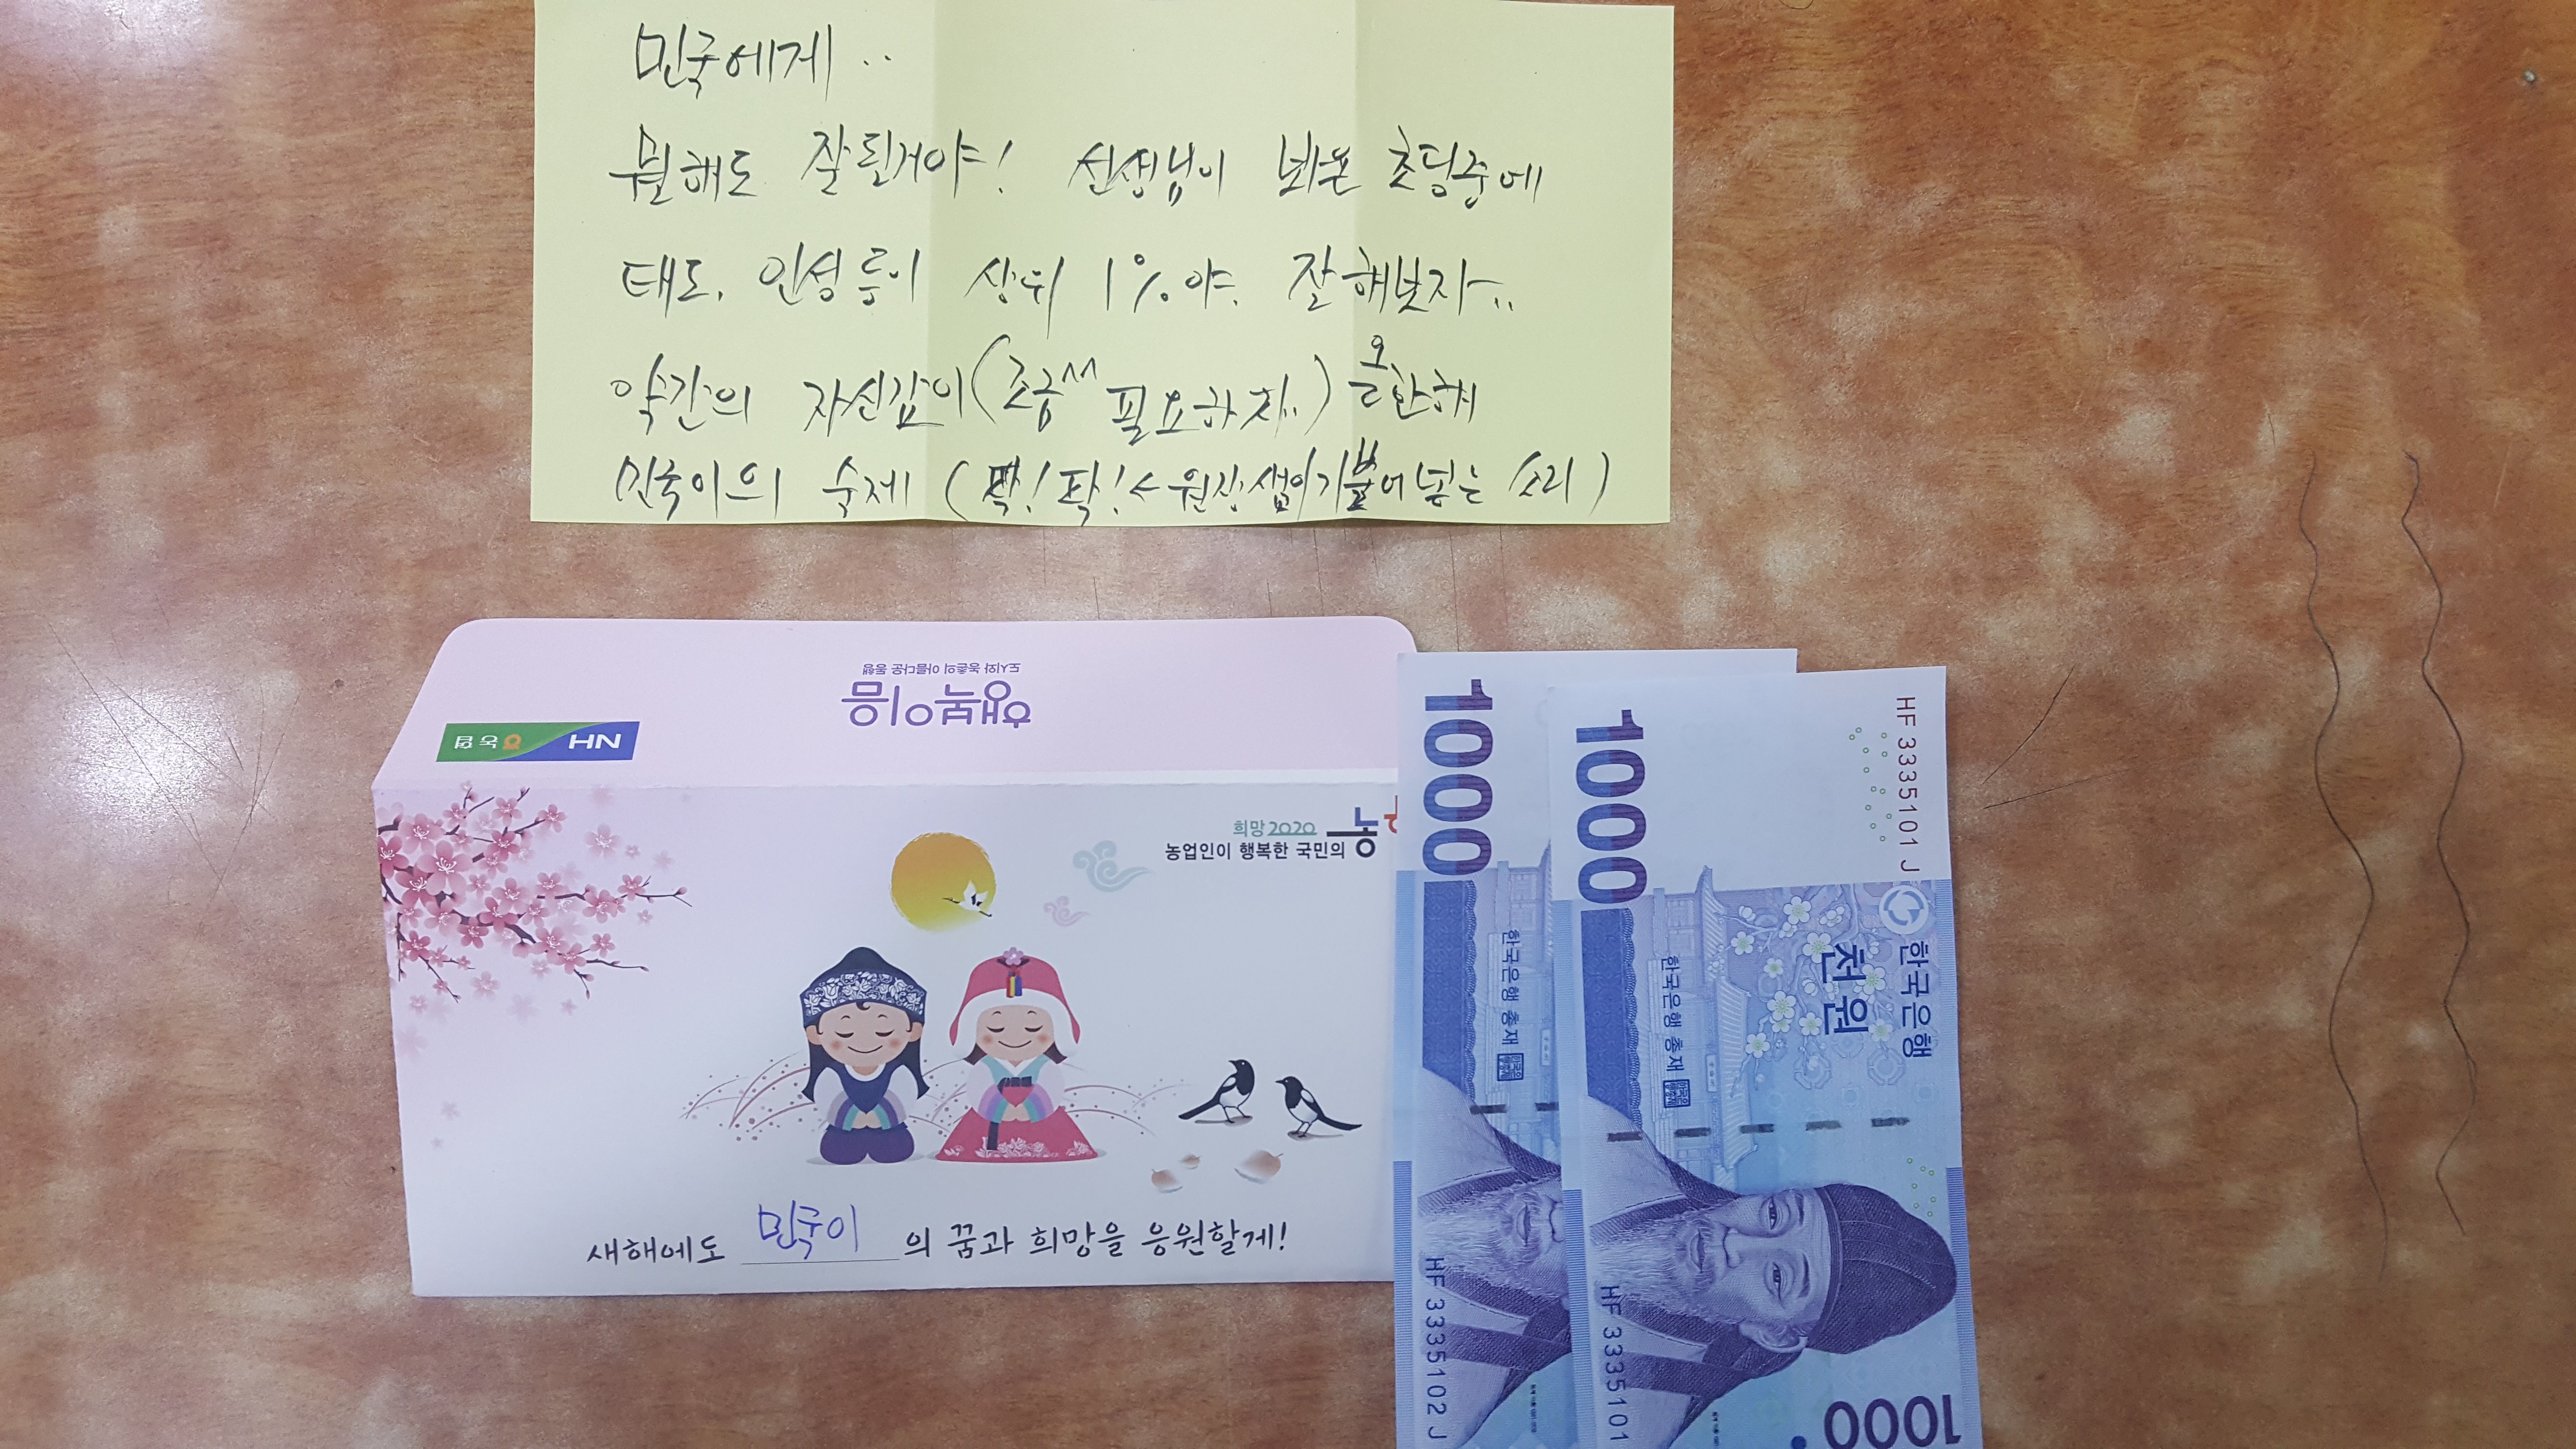 민국에게..
뭘해도 잘 된거야! 선생님이 봐온 초딩중에
태도, 인성 등이 상위 1%야. 잘 해보자..
약간의 자신감이(조금^^ 필요하지..) 올한해
민국이의 숙제 (팍! 팍! ← 원장샘이 기 불어 넣는 소리)
도시와 농촌의 아름다운 동행
행복이음
NH 농협
희망2020
농업인이 행복한 국민의 농
새해에도 민국이의 꿈과 희망을 응원할게!
1000
한국은행 총재
HF 3335102 J
1000
HF 3335101 J
한국은행
천원
한국은행 총재
HF 3335101
1000